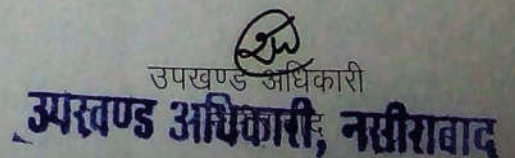 उपखण्ड अधिकारी
उपखण्ड अधिकारी, नसीराबाद